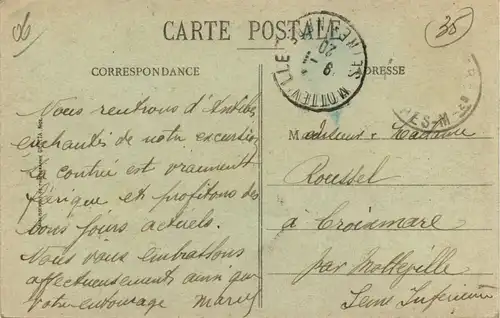 35
CARTE POSTALE
CORRESPONDANCE
ADRESSE
Nous rentrons d'Antibes
enchantés de notre excursion
La contrée est vraiment
féerique et profitons des
bons jours actuels.
Nous vous embrassons
affectueusement ainsi que
votre entourage Marcy
Monsieur & Madame
Roussel
a Croixmare
par Motteville
Seine Inférieure